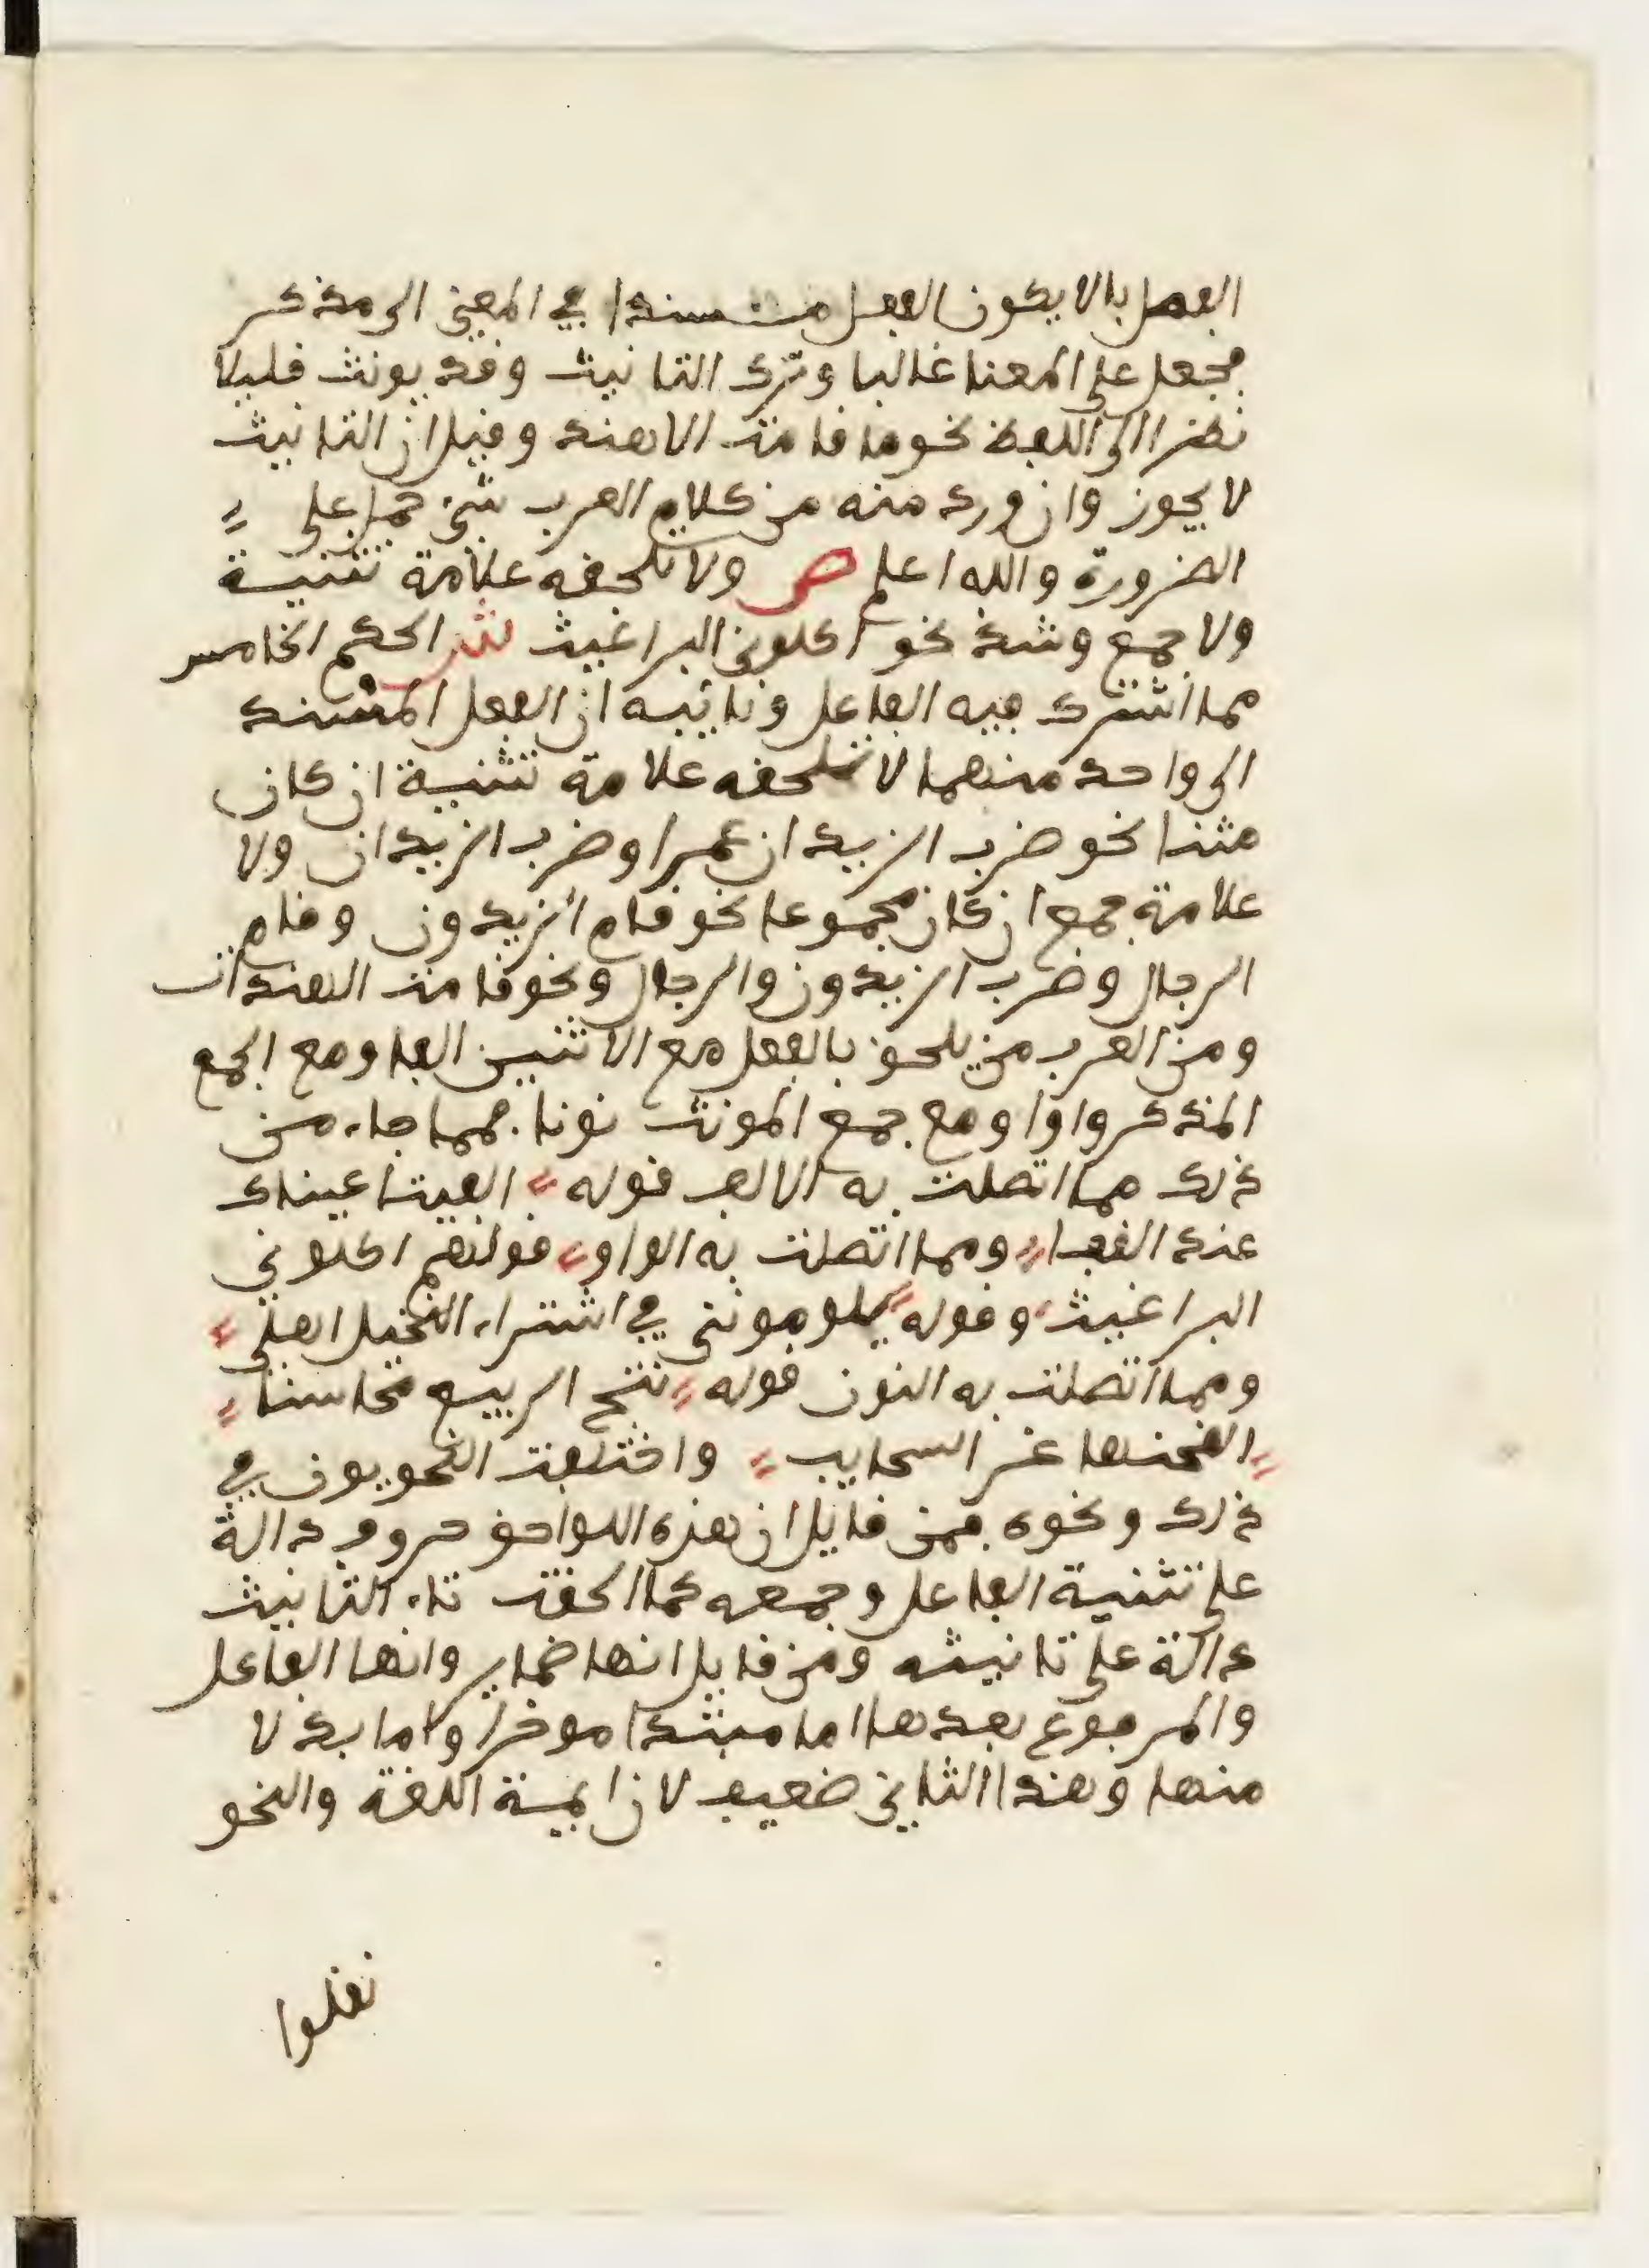 الفصل بالا يكون الفعل مسندا في المعنى الى مذكر
فجعل على المعنا غالبا وترك التانيث وقد يونث قليلا
نظرا الى اللفظ نحو ما قامت الا هند وقيل ان التانيث
لا يجوز وان ورد منه من كلام العرب شيء حمل على
الضرورة والله اعلم ص ولا تلحقه علامة تثنية
ولا جمع وشذ نحو اكلوني البراغيث ش الحكم الخامس
مما اشترك فيه الفاعل ونائبه ان الفعل المسند
الى واحد منهما لا تلحقه علامة تثنية ان كان
مثنا نحو ضرب الزيدان عمرا وضرب الزيدان ولا
علامة جمع ان كان مجموعا نحو قام الزيدون وقام
الرجال وضرب الزيدون والرجال ونحو قامت الهندات
ومن العرب من يلحق بالفعل مع الاثنين الفا ومع الجمع
المذكر واوا ومع جمع المونث نونا فمما جاء من
ذلك مما اتصلت به الالف قوله الفيتا عيناك
عند القفا ومما اتصلت به الواو قولهم اكلوني
البراغيث وقوله يلومونني في اشتراء النخيل اهلي
ومما اتصلت به النون قوله نتج الربيع محاسنا
القحنها غر السحايب واختلفت النحويون في
ذلك ونحوه فمن قايل ان هذه اللواحق حروف دالة
على تثنية الفاعل وجمعه كما الحقت تاء التانيث
دالة على تانيثه ومن قايل انها ضماير وانها الفاعل
والمرفوع بعدها اما مبتدا موخرا واما بدلا
منها وهذا الثاني ضعيف لان ايمة اللغة والنحو
نقلوا